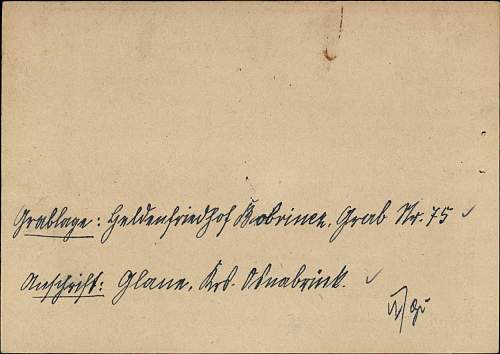 Grablage: Heldenfriedhof Bobrinez, Grab Nr. 75
Anschrift: Glane, Krs. Osnabrück.